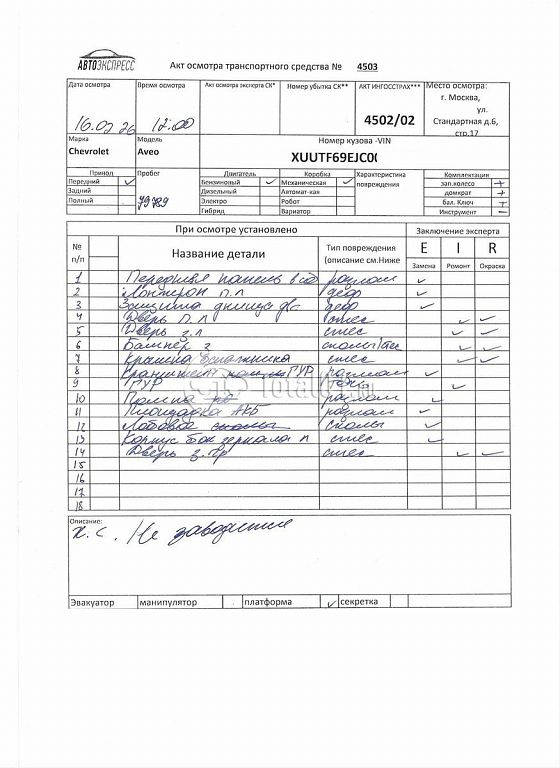 АВТОЭКСПРЕСС
Акт осмотра транспортного средства № 4503
Дата осмотра Время осмотра Акт осмотра эксперта СК* Номер убытка СК** АКТ ИНГОССТРАХ*** Место осмотра:
г. Москва,
ул.
Стандартная д.6,
стр.17
12:00 4502/02
Марка Модель Номер кузова -VIN
Chevrolet Aveo XUUTF69EJC0
Привод Пробег Двигатель Коробка Характеристика повреждения Комплектация
Передний ✓ 79789 Бензиновый ✓ Механическая ✓ зап.колесо +
Задний Дизельный Автомат-кая домкрат +
Полный Электро Робот бал. Ключ
Гибрид Вариатор Инструмент –
При осмотре установлено Заключение эксперта
№ п/п Название детали Тип повреждения (описание см.Ниже E I R
Замена Ремонт Окраска
1 Передняя панель разлом ✓
2 Лонжерон п.л деф ✓
3 Защита днища деф ✓
4 Дверь п.л стес ✓ ✓
5 Дверь з.л стес ✓ ✓
6 Бампер з сколы ✓ ✓
7 Крышка багажника стес ✓ ✓
8 ГУР разлом ✓
9 ГУР ✓
10 Помпа разлом ✓
11 Площадка АКБ разлом ✓
12 Лобовое сколы ✓
13 Корпус бок зеркала п стес ✓
14 Дверь з.пр стес ✓ ✓
15
16
17
18
Описание:
Х.С. Не заводится
Эвакуатор манипулятор платформа ✓ секретка